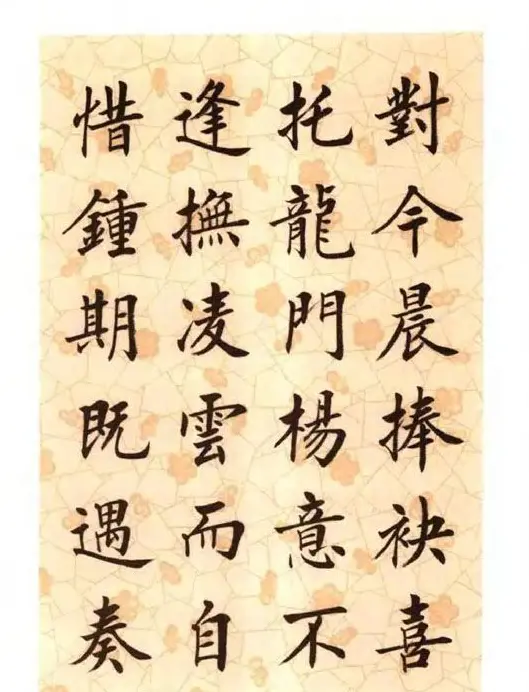 對今晨捧袂喜
托龍門楊意不
逢撫凌雲而自
惜鍾期既遇奏